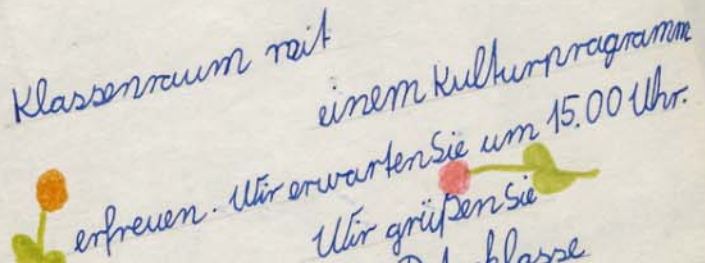 Klassenraum mit
einem Kulturprogramm
erfreuen. Wir erwarten Sie um 15.00 Uhr.
Wir grüßen Sie
klasse